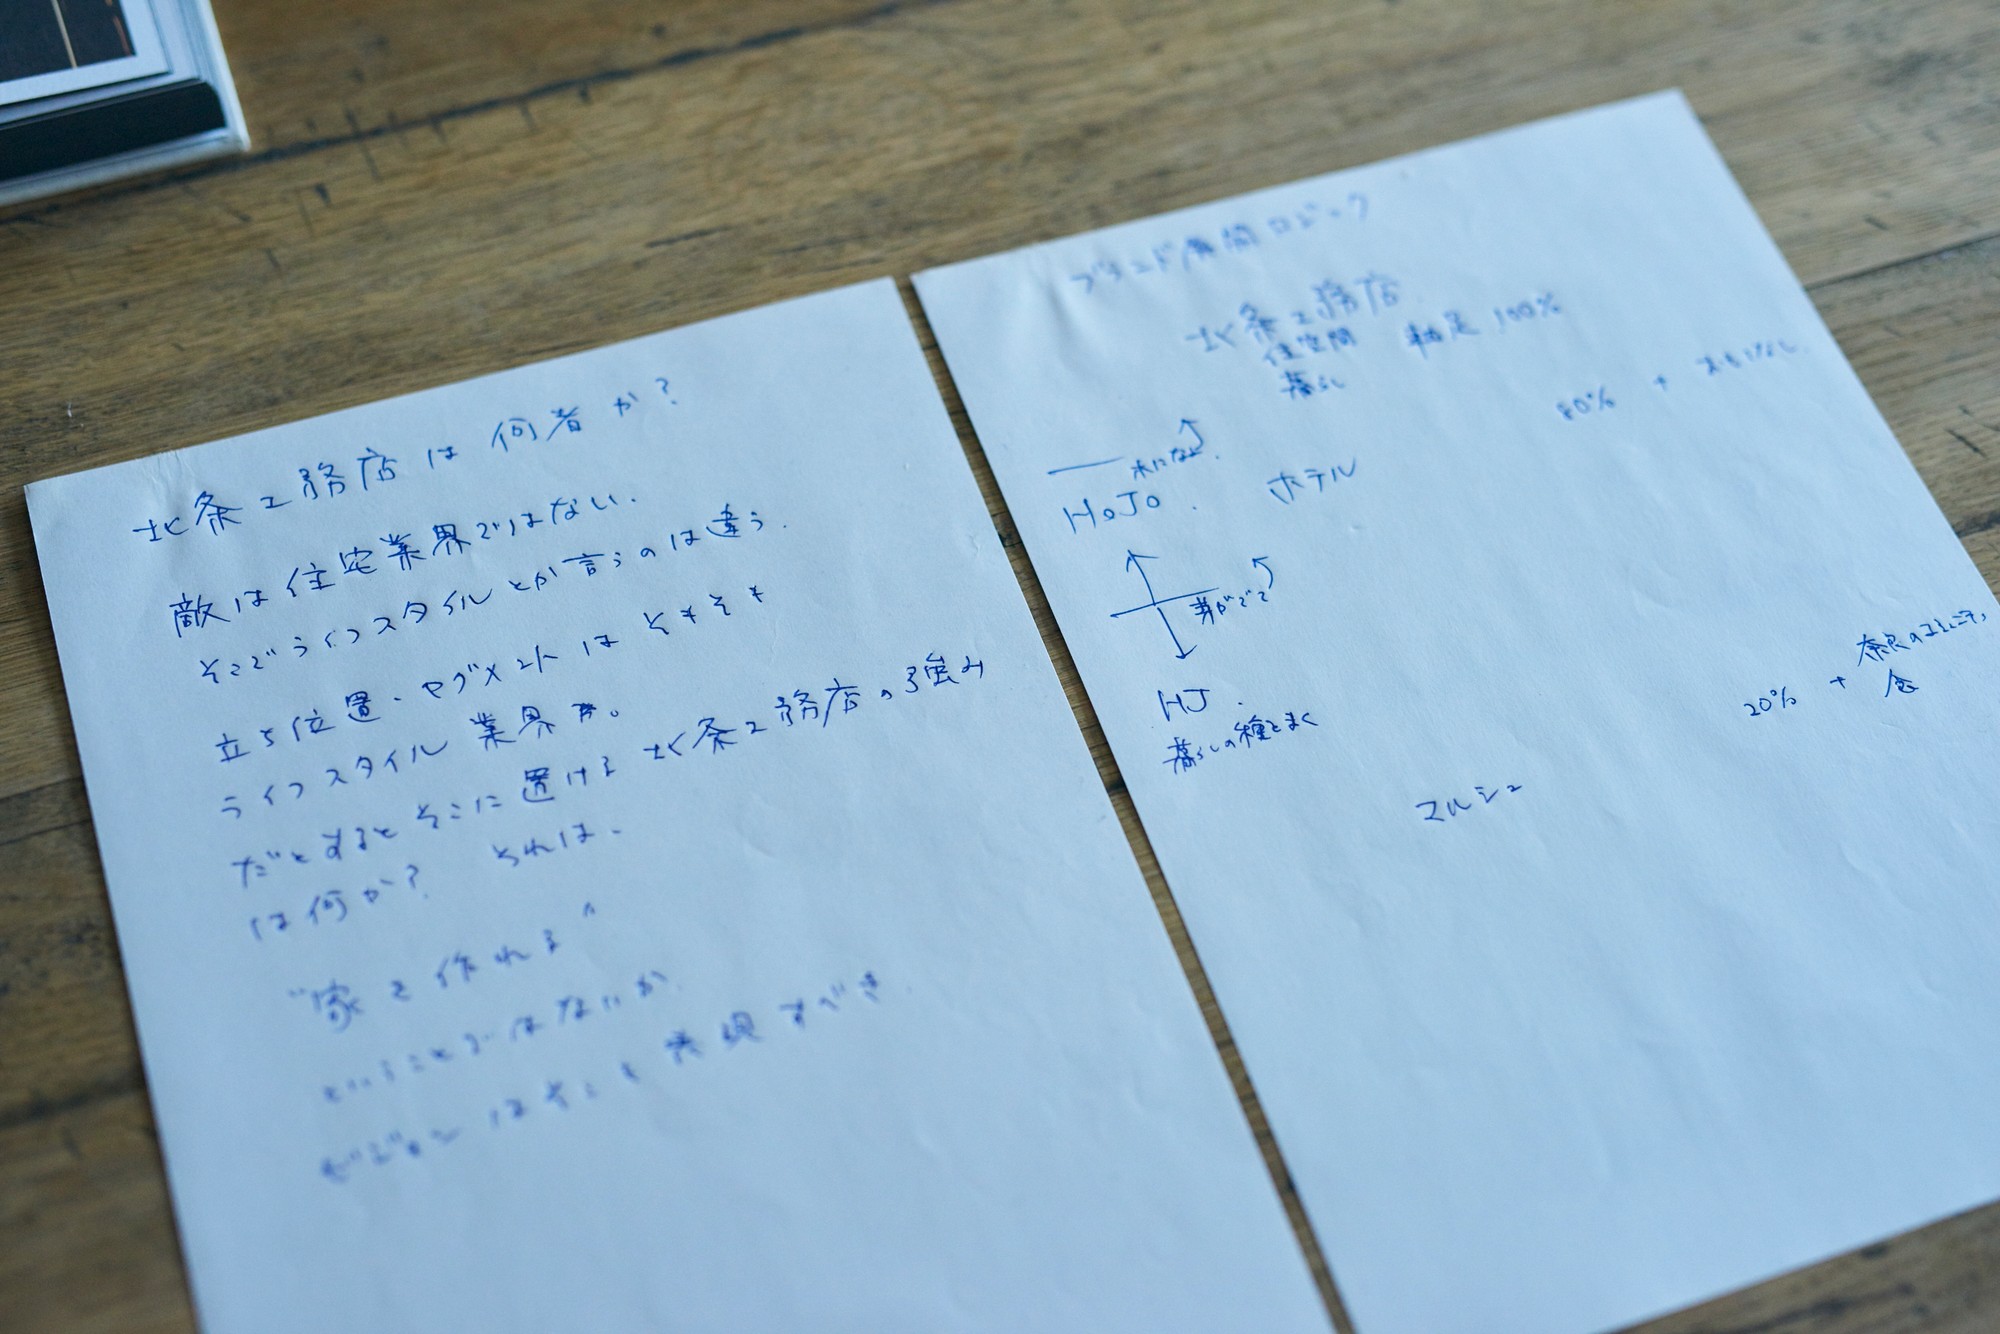 北条工務店は何者か?
敵は住宅業界ではない.
そこでライフスタイルとか言うのは違う.
立ち位置・セグメントはそもそも
ライフスタイル業界か。
だとするとそこに置ける北条工務店の強み
は何か? それは、
"家を作れる"
ということではないか
ビジョンはそこを表現すべき.
ブランド展開ロジック
北条工務店
住空間 軸足 100%
暮らし
80% + おもてなし.
木になる.
HOJO. ホテル
芽がでて
HJ.
暮らしの種をまく
20% + 奈良のコミュニティ
マルシェ